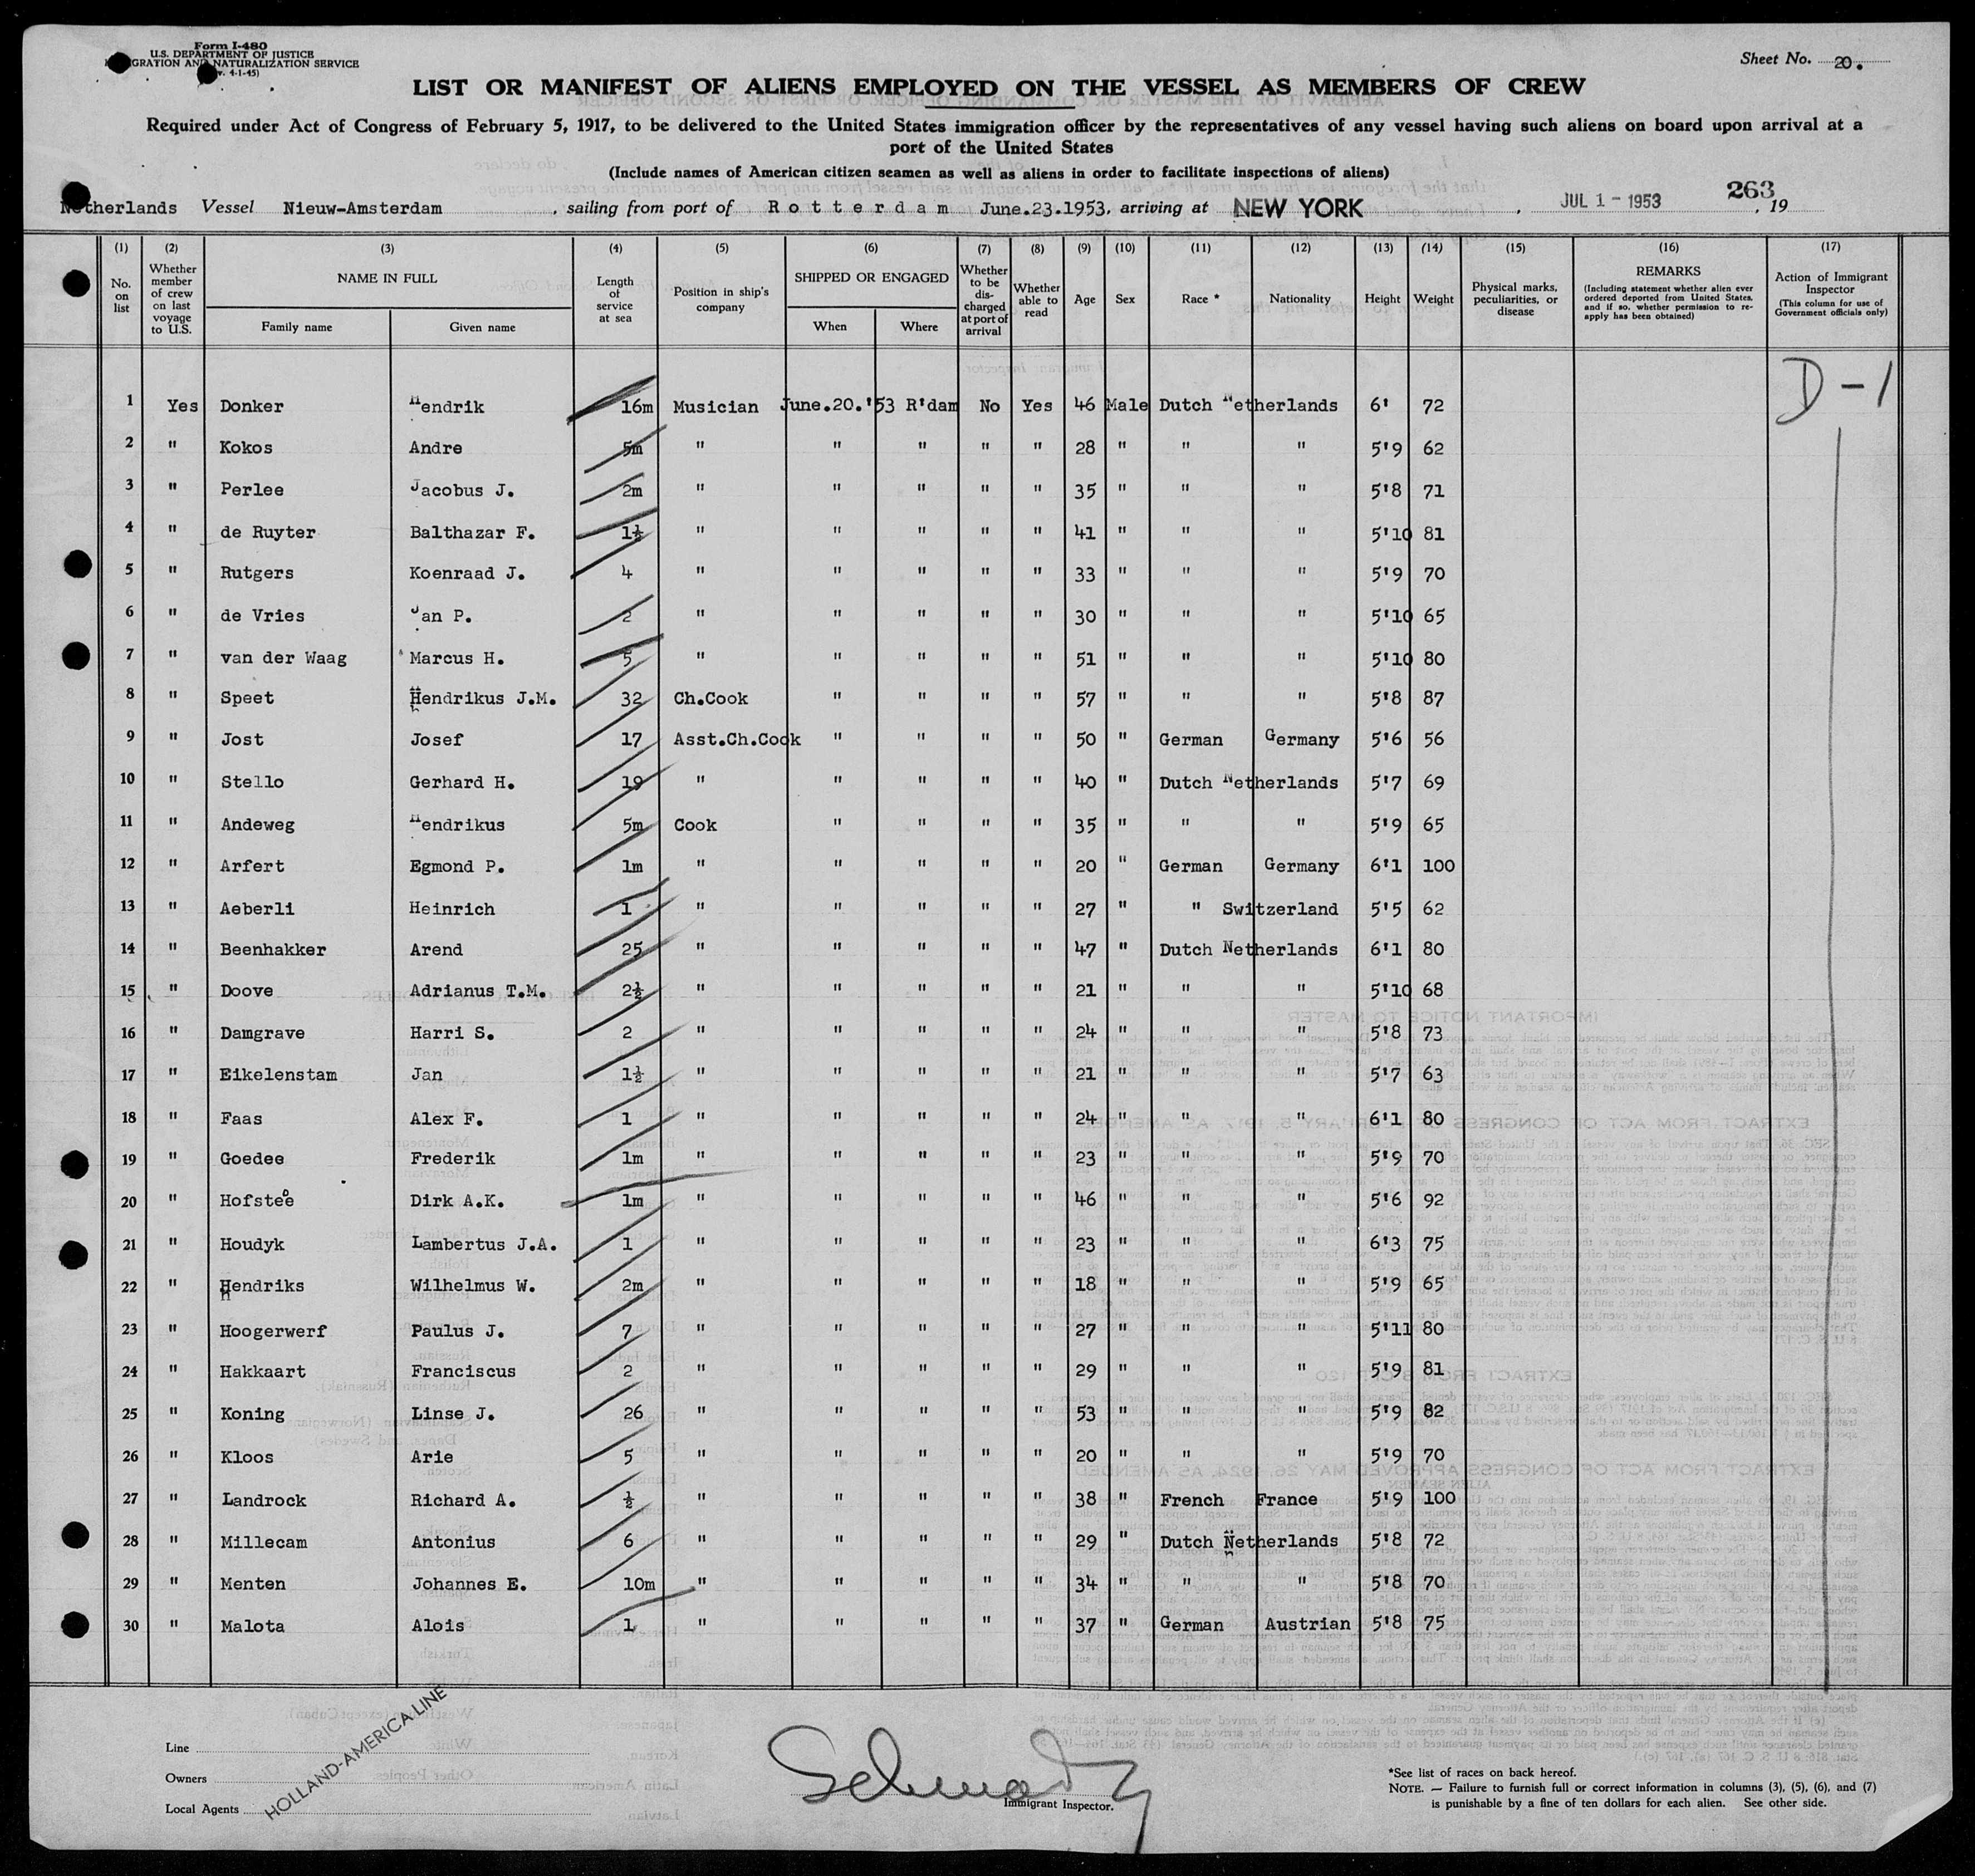 Form I-480
U.S. DEPARTMENT OF JUSTICE
IGRATION AND NATURALIZATION SERVICE
v. 4-1-45)
Sheet No. 20.
LIST OR MANIFEST OF ALIENS EMPLOYED ON THE VESSEL AS MEMBERS OF CREW
Required under Act of Congress of February 5, 1917, to be delivered to the United States immigration officer by the representatives of any vessel having such aliens on board upon arrival at a
port of the United States
(Include names of American citizen seamen as well as aliens in order to facilitate inspections of aliens)
263
Netherlands Vessel Nieuw-Amsterdam, sailing from port of Rotterdam June.23.1953, arriving at NEW YORK, JUL 1 - 1953, 19
(1) (2) (3) (4) (5) (6) (7) (8) (9) (10) (11) (12) (13) (14) (15) (16) (17)
No. on list
Whether member of crew on last voyage to U.S.
NAME IN FULL
Family name Given name
Length of service at sea
Position in ship's company
SHIPPED OR ENGAGED
When Where
Whether to be dis-charged at port of arrival
Whether able to read
Age
Sex
Race *
Nationality
Height
Weight
Physical marks, peculiarities, or disease
REMARKS
(Including statement whether alien ever ordered deported from United States, and if so, whether permission to re-apply has been obtained)
Action of Immigrant Inspector
(This column for use of Government officials only)
D-1
1 Yes Donker Hendrik 16m Musician June.20.'53 R'dam No Yes 46 Male Dutch Netherlands 6' 72
2 " Kokos Andre 5m " " " " " 28 " " " 5'9 62
3 " Perlee Jacobus J. 2m " " " " " 35 " " " 5'8 71
4 " de Ruyter Balthazar F. 1½ " " " " " 41 " " " 5'10 81
5 " Rutgers Koenraad J. 4 " " " " " 33 " " " 5'9 70
6 " de Vries Jan P. 2 " " " " " 30 " " " 5'10 65
7 " van der Waag Marcus H. 5 " " " " " 51 " " " 5'10 80
8 " Speet Hendrikus J.M. 32 Ch.Cook " " " " 57 " " " 5'8 87
9 " Jost Josef 17 Asst.Ch.Cook " " " " 50 " German Germany 5'6 56
10 " Stello Gerhard H. 19 " " " " " 40 " Dutch Netherlands 5'7 69
11 " Andeweg Hendrikus 5m Cook " " " " 35 " " " 5'9 65
12 " Arfert Egmond P. 1m " " " " " 20 " German Germany 6'1 100
13 " Aeberli Heinrich 1 " " " " " 27 " " Switzerland 5'5 62
14 " Beenhakker Arend 25 " " " " " 47 " Dutch Netherlands 6'1 80
15 " Doove Adrianus T.M. 2½ " " " " " 21 " " " 5'10 68
16 " Damgrave Harri S. 2 " " " " " 24 " " " 5'8 73
17 " Eikelenstam Jan 1½ " " " " " 21 " " " 5'7 63
18 " Faas Alex F. 1 " " " " " 24 " " " 6'1 80
19 " Goedee Frederik 1m " " " " " 23 " " " 5'9 70
20 " Hofstee Dirk A.K. 1m " " " " " 46 " " " 5'6 92
21 " Houdyk Lambertus J.A. 1 " " " " " 23 " " " 6'3 75
22 " Hendriks Wilhelmus W. 2m " " " " " 18 " " " 5'9 65
23 " Hoogerwerf Paulus J. 7 " " " " " 27 " " " 5'11 80
24 " Hakkaart Franciscus 2 " " " " " 29 " " " 5'9 81
25 " Koning Linse J. 26 " " " " " 53 " " " 5'9 82
26 " Kloos Arie 5 " " " " " 20 " " " 5'9 70
27 " Landrock Richard A. ½ " " " " " 38 " French France 5'9 100
28 " Millecam Antonius 6 " " " " " 29 " Dutch Netherlands 5'8 72
29 " Menten Johannes E. 10m " " " " " 34 " " " 5'8 70
30 " Malota Alois 1 " " " " " 37 " German Austrian 5'8 75
Line
Owners
Local Agents
HOLLAND-AMERICA LINE
Immigrant Inspector.
*See list of races on back hereof.
NOTE. — Failure to furnish full or correct information in columns (3), (5), (6), and (7)
is punishable by a fine of ten dollars for each alien. See other side.